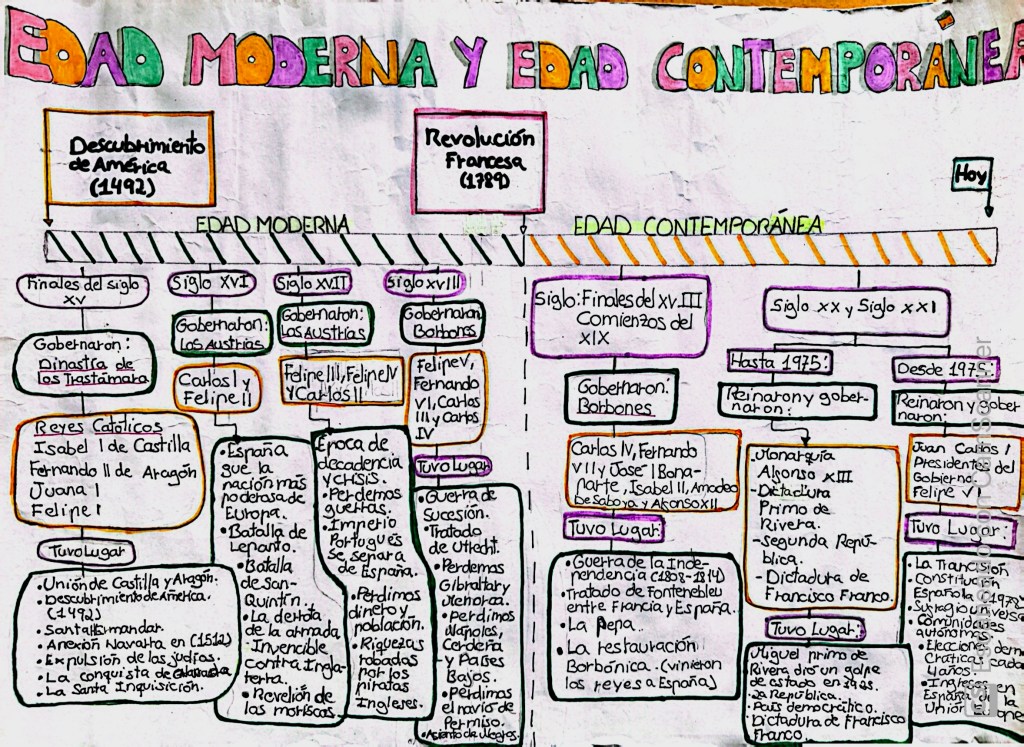 EDAD MODERNA Y EDAD CONTEMPORÁNEA
Descubrimiento
de América
(1492)
Revolución
Francesa
(1789)
Hoy
EDAD MODERNA
EDAD CONTEMPORÁNEA
Finales del siglo
XV
Gobernaron:
Dinastía de
los Trastámara
Reyes Católicos
Isabel I de Castilla
Fernando II de Aragón
Juana I
Felipe I
Tuvo Lugar
•Unión de Castilla y Aragón.
•Descubrimiento de América.
(1492)
•Santa Hermandar.
•Anexión Navarra en (1512)
•Expulsión de los judíos.
•La conquista de Granada
•La Santa Inquisición.
Siglo XVI
Gobernaron:
Los Austrias
Carlos I y
Felipe II
•España
que la
nación más
poderosa de
Europa.
•Batalla de
Lepanto.
•Batalla
de San-
Quintín.
•La derrota
de la armada
Invencible
contra Ingla-
terra.
•Revelión de
los moriscos
Siglo XVII
Gobernaron:
Los Austrias
Felipe III, Felipe IV
y Carlos II
Época de
decadencia
y crisis.
•Perdemos
guerras.
•Imperio
Portugués
se senara
de España.
•Perdimos
dinero y
población.
•Riquezas
robadas
por los
piratas
Ingleses.
Siglo XVIII
Gobernaron
Borbones
Felipe V,
Fernando
VI, Carlos
III, y Carlos
IV
Tuvo Lugar
•Guerra de
Sucesión.
•Tratado
de Utrecht.
•Perdemos
Gibraltar y
Menorca.
•Perdimos
Nápoles,
Cerdeña
y Países
Bajos.
•Perdimos
el navío de
Permiso.
•Asiento de Negros.
Siglo: Finales del XVIII
Comienzos del
XIX
Gobernaron:
Borbones
Carlos IV, Fernando
VII y José I Bona-
parte, Isabel II, Amadeo
de Saboya y Alfonso XII
Tuvo Lugar:
•Guerra de la Inde-
pendencia (1808-1814)
•Tratado de Fontenebleu
entre Francia y España.
•La Pepa.
•La restauración
Borbónica. (vinieron
los reyes a España)
Siglo XX y Siglo XXI
Hasta 1975:
Reinaron y gober-
naron:
-Monarquía
Alfonso XIII
-Dictadura
Primo de
Rivera.
-Segunda Repú-
blica.
-Dictadura de
Francisco Franco.
Tuvo Lugar:
Miguel primo de
Rivera dió un golpe
de estado en
•La República.
•País democrático.
•Dictadura de Francisco
Franco.
Desde 1975:
Reinaron y gober-
naron:
Juan Carlos I
Presidentes del
Gobierno.
Felipe VI
Tuvo Lugar:
•La Trancisión
•Constitución
Española
•Sufragio universal
•Comunidades
autónomas.
•Elecciones demo
cráticas cada
4 años.
•Ingreso
España en la
Unión
CS Escaneado con CamScanner